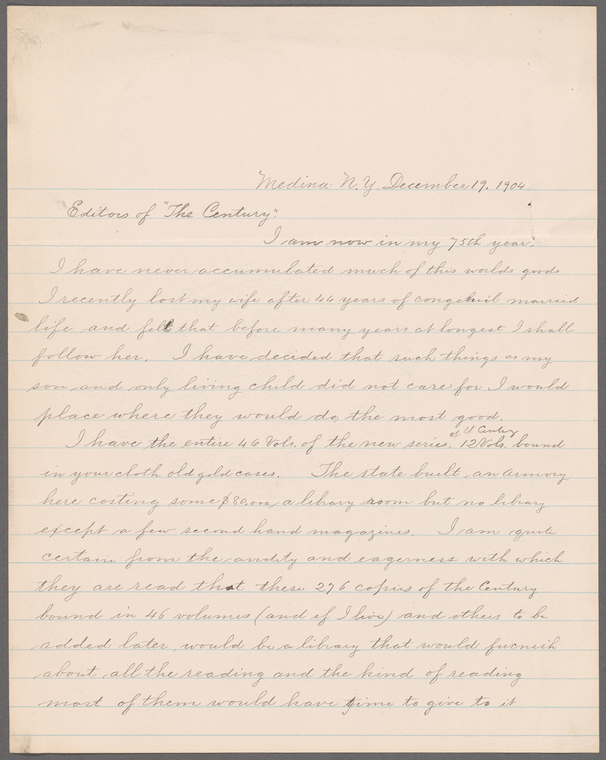 Medina N.Y. December 19, 1904
Editors of "The Century"
I am now in my 75th year.
I have never accumulated much of this worlds goods
I recently lost my wife after 46 years of congenial married
life and felt that before many years at longest I shall
follow her. I have decided that such things as my
son and only living child did not care for I would
place where they would do the most good.
I have the entire 46 Vols. of the new series, of "Century" 12 Vols. bound
in your cloth old gold cases. The state built an armory
here costing some $80.000, a library room but no library
except a few second hand magazines. I am quite
certain from the avidity and eagerness with which
they are read that these 276 copies of the Century
bound in 46 volumes (and if I live) and others to be
added later, would be a library that would furnish
about all the reading and the kind of reading
most of them would have time to give to it